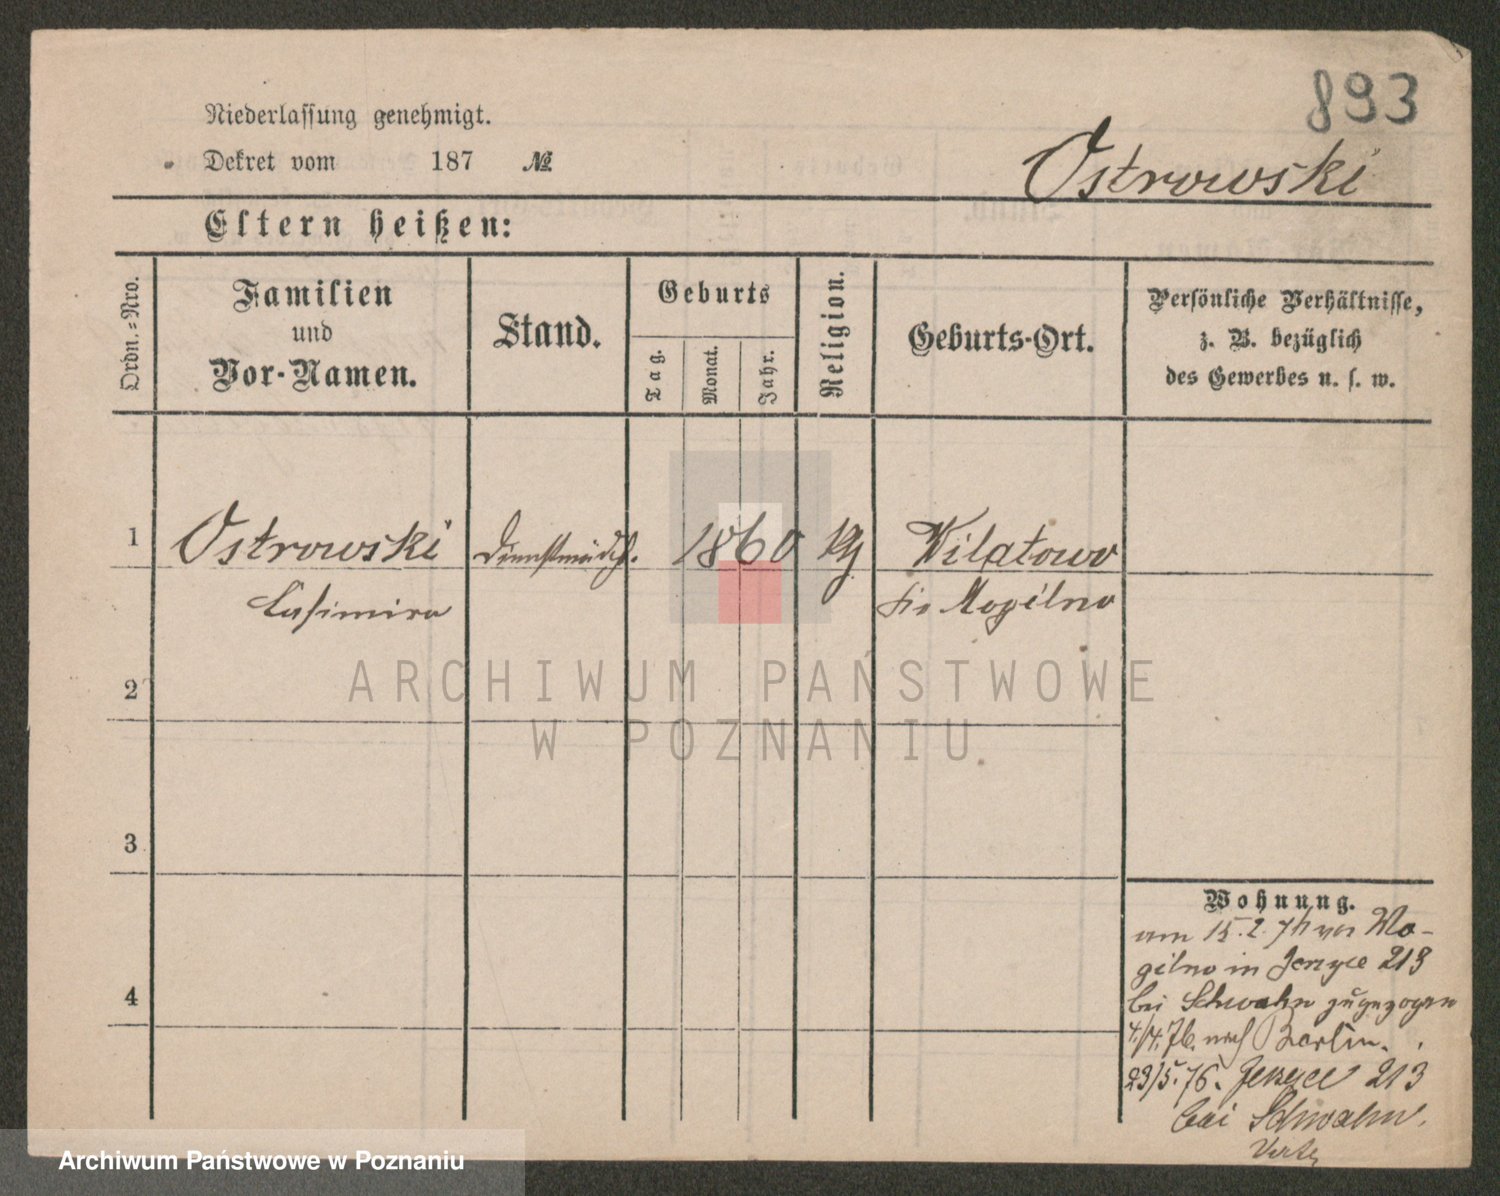 893
Niederlassung genehmigt.
Dekret vom 187 №
Ostrowski
Eltern heißen:
Ordn.=Nro.
Familien
und
Vor-Namen.
Stand.
Geburts
Tag.
Monat.
Jahr.
Religion.
Geburts-Ort.
Persönliche Verhältnisse,
z. B. bezüglich
des Gewerbes u. s. w.
1 Ostrowski Dienstmädch. 1860 Wilatowo
Casimira Mogilno
2
3
4
Wohnung.
am 15.2. von Mo-
gilno in Jerzyce 213
bei Schwahn zugezogen
4./4. 76. nach Berlin.
23/5. 76. Jerzyce 213
bei Schwahn.
ARCHIWUM PAŃSTWOWE
W POZNANIU
Archiwum Państwowe w Poznaniu